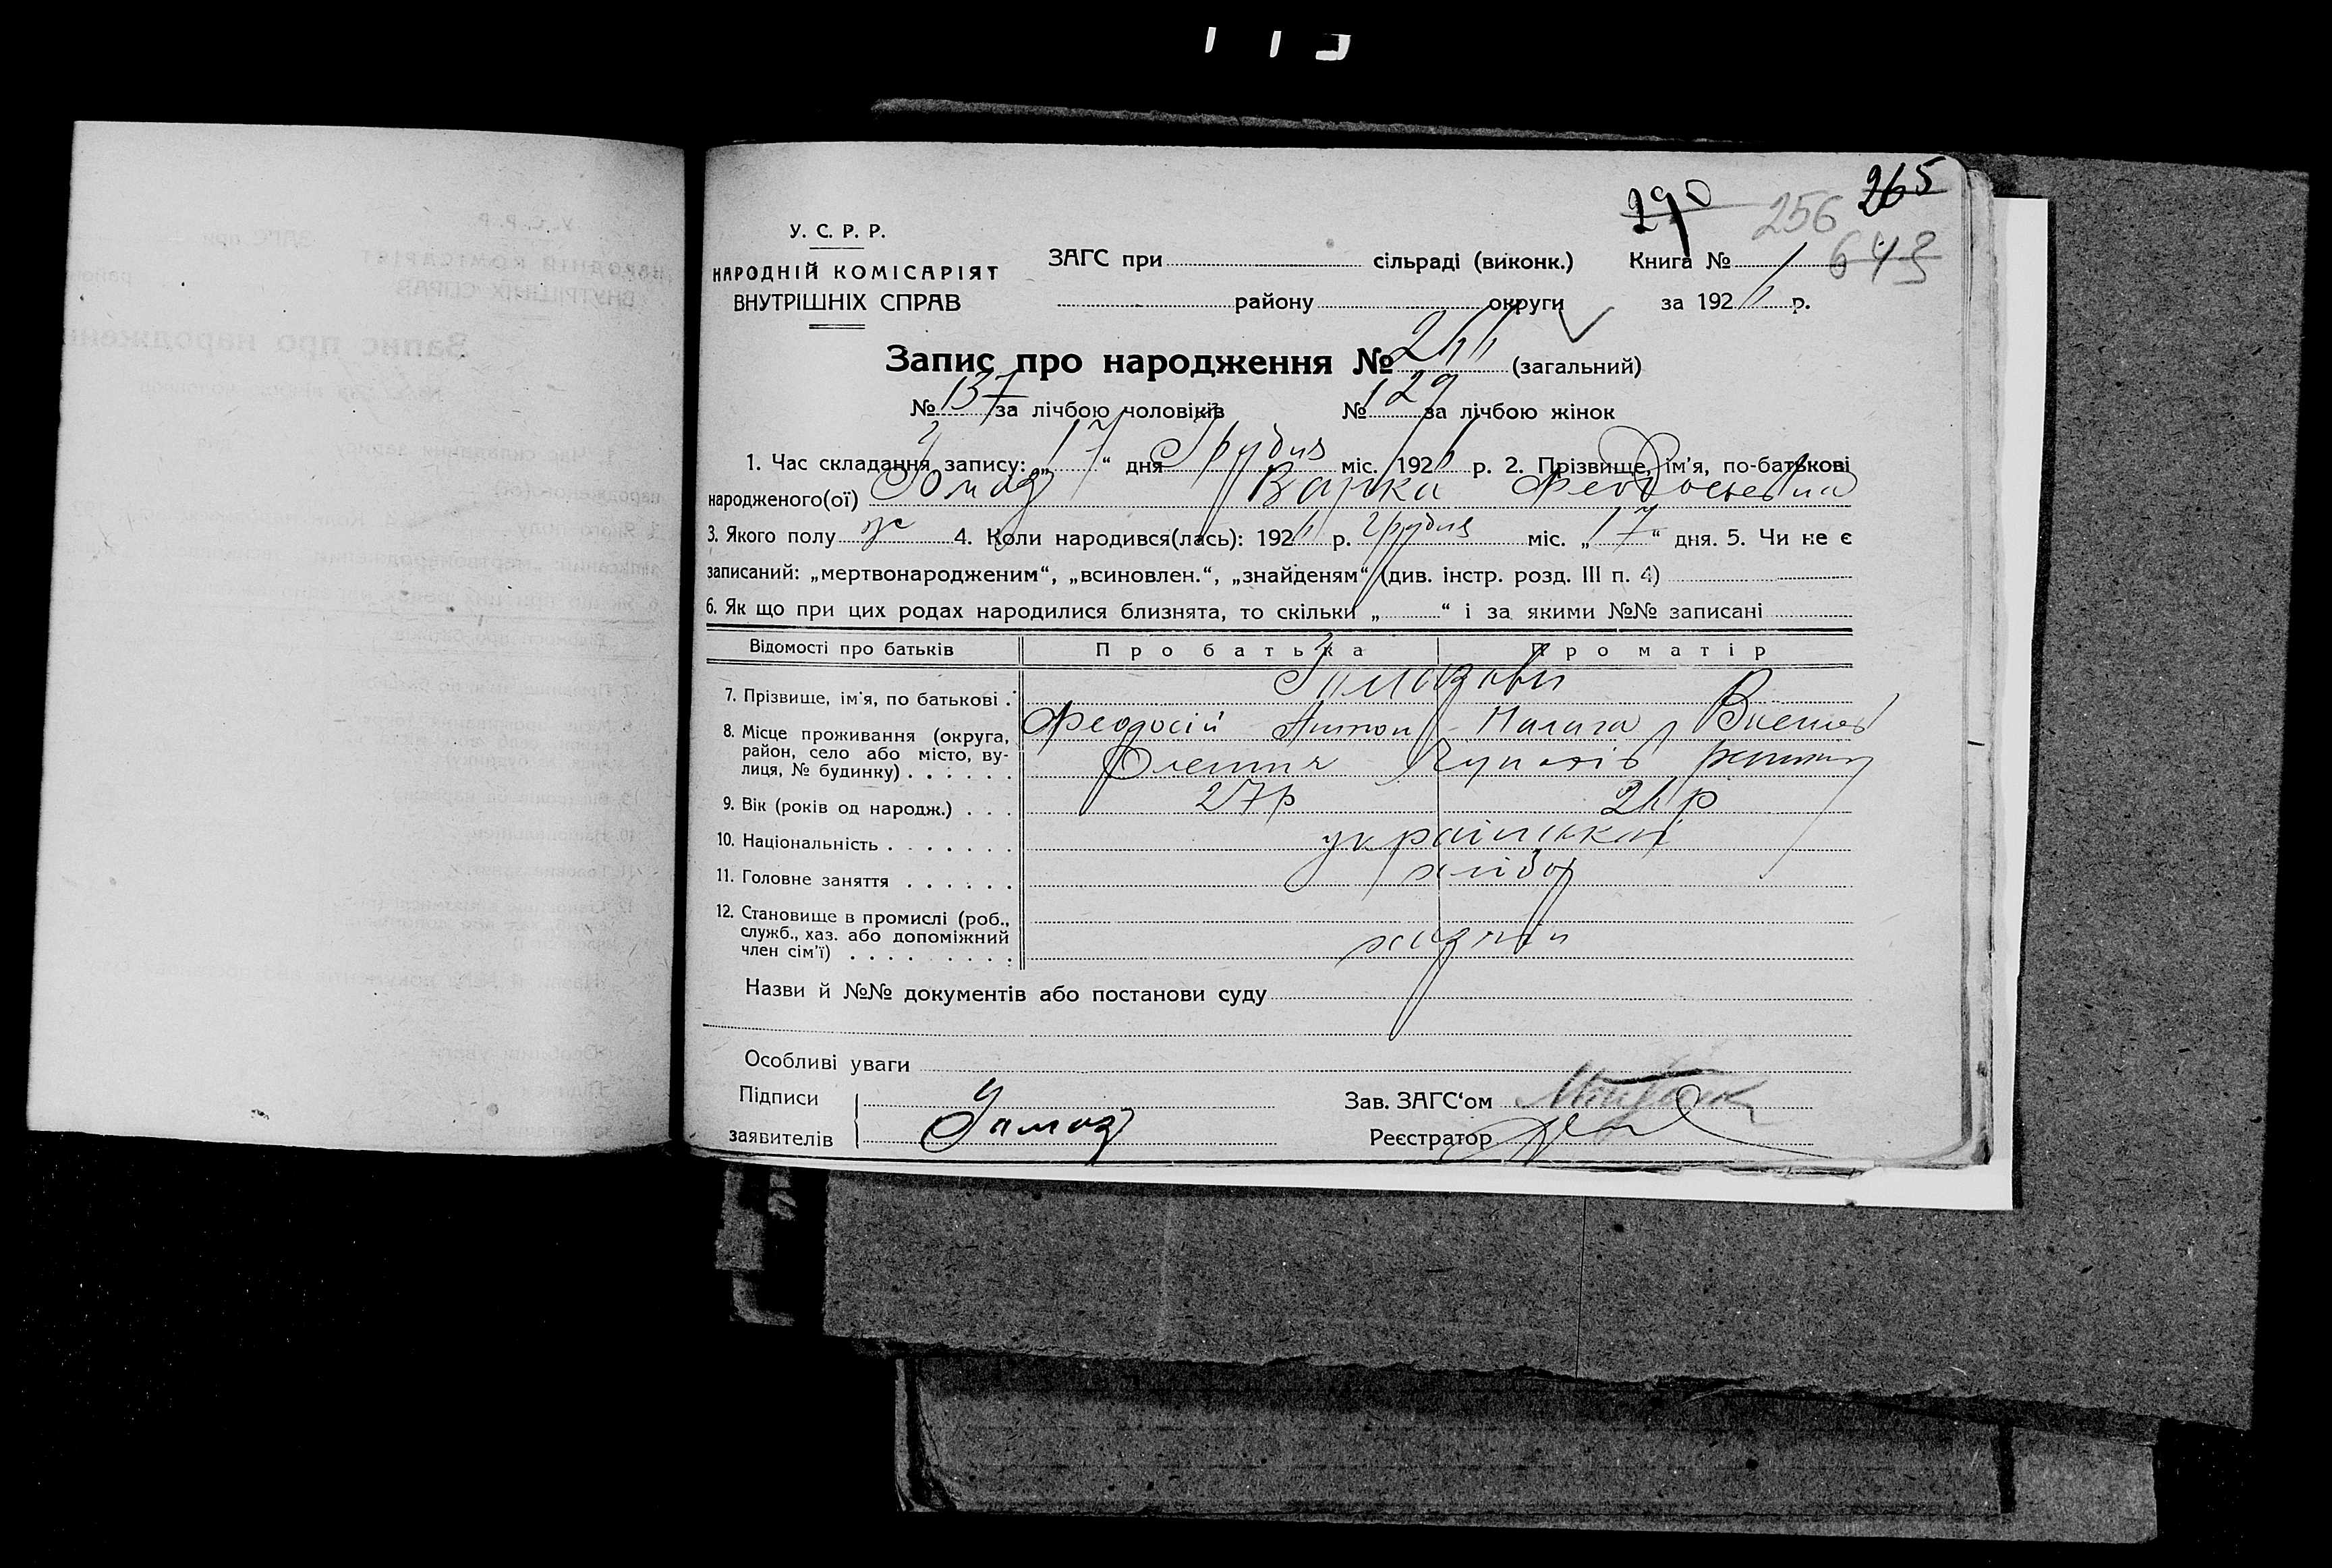 290 256 265
У. С. Р. Р.
НАРОДНІЙ КОМІСАРІЯТ
ВНУТРІШНІХ СПРАВ
ЗАГС при сільраді (виконк.) Книга № 1 643
району округи за 192 р.
Запис про народження № (загальний)
№ 137 за лічбою чоловіків № 129 за лічбою жінок
1. Час складання запису: „17“ дня Грудня міс. 192 р. 2. Прізвище, ім'я, по-батькові
народженого(ої) Гомоз Варка Феодосьевна
3. Якого полу ж 4. Коли народився(лась): 192 р. Грудня міс. „17“ дня. 5. Чи не є
записаний: „мертвонародженим“, „всиновлен.“, „знайденям“ (див. інстр. розд. III п. 4)
6. Як що при цих родах народилися близнята, то скільки „ “ і за якими №№ записані
Відомості про батьків Про батька Про матір
7. Прізвище, ім'я, по батькові .
Феодосій Антон
8. Місце проживання (округа,
район, село або місто, ву-
лиця, № будинку) . . . . . .
9. Вік (років од народж.) . . . 27р 26р
10. Національність . . . . . . . українські
11. Головне заняття . . . . . . хлібор
12. Становище в промислі (роб.,
служб., хаз. або допоміжний
член сім'ї) . . . . . . . . . хазяїн
Назви й №№ документів або постанови суду
Особливі уваги
Підписи
заявителів Гамоз
Зав. ЗАГС‘ом
Реєстратор